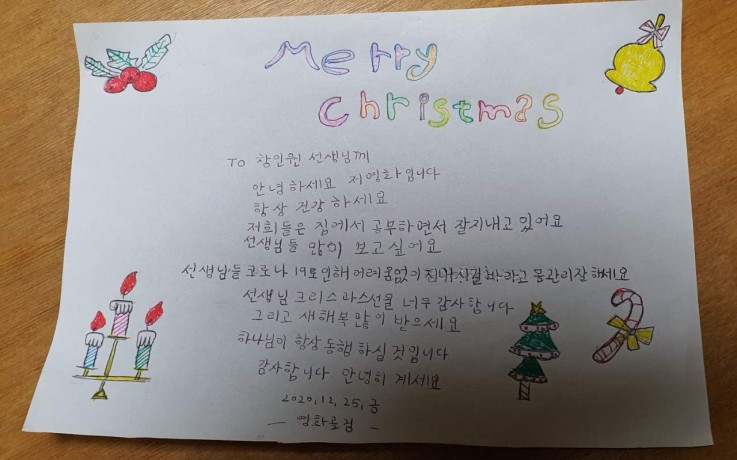 Merry
Christmas
TO 창인원 선생님께
안녕하세요 저영화입니다
항상 건강 하세요
저희들은 집에서 공부하면서 잘지내고 있어요
선생님들 많이 보고 싶어요
선생님들 코로나 19로인해 어려움없이 바라고 몸관리잘 하세요
선생님 크리스마스선물 너무 감사합니다
그리고 새해복많이 받으세요
하나님이 항상 동행 하실 것입니다
감사합니다 안녕히 계세요
2020, 12, 25, 금
- 영화로집 -